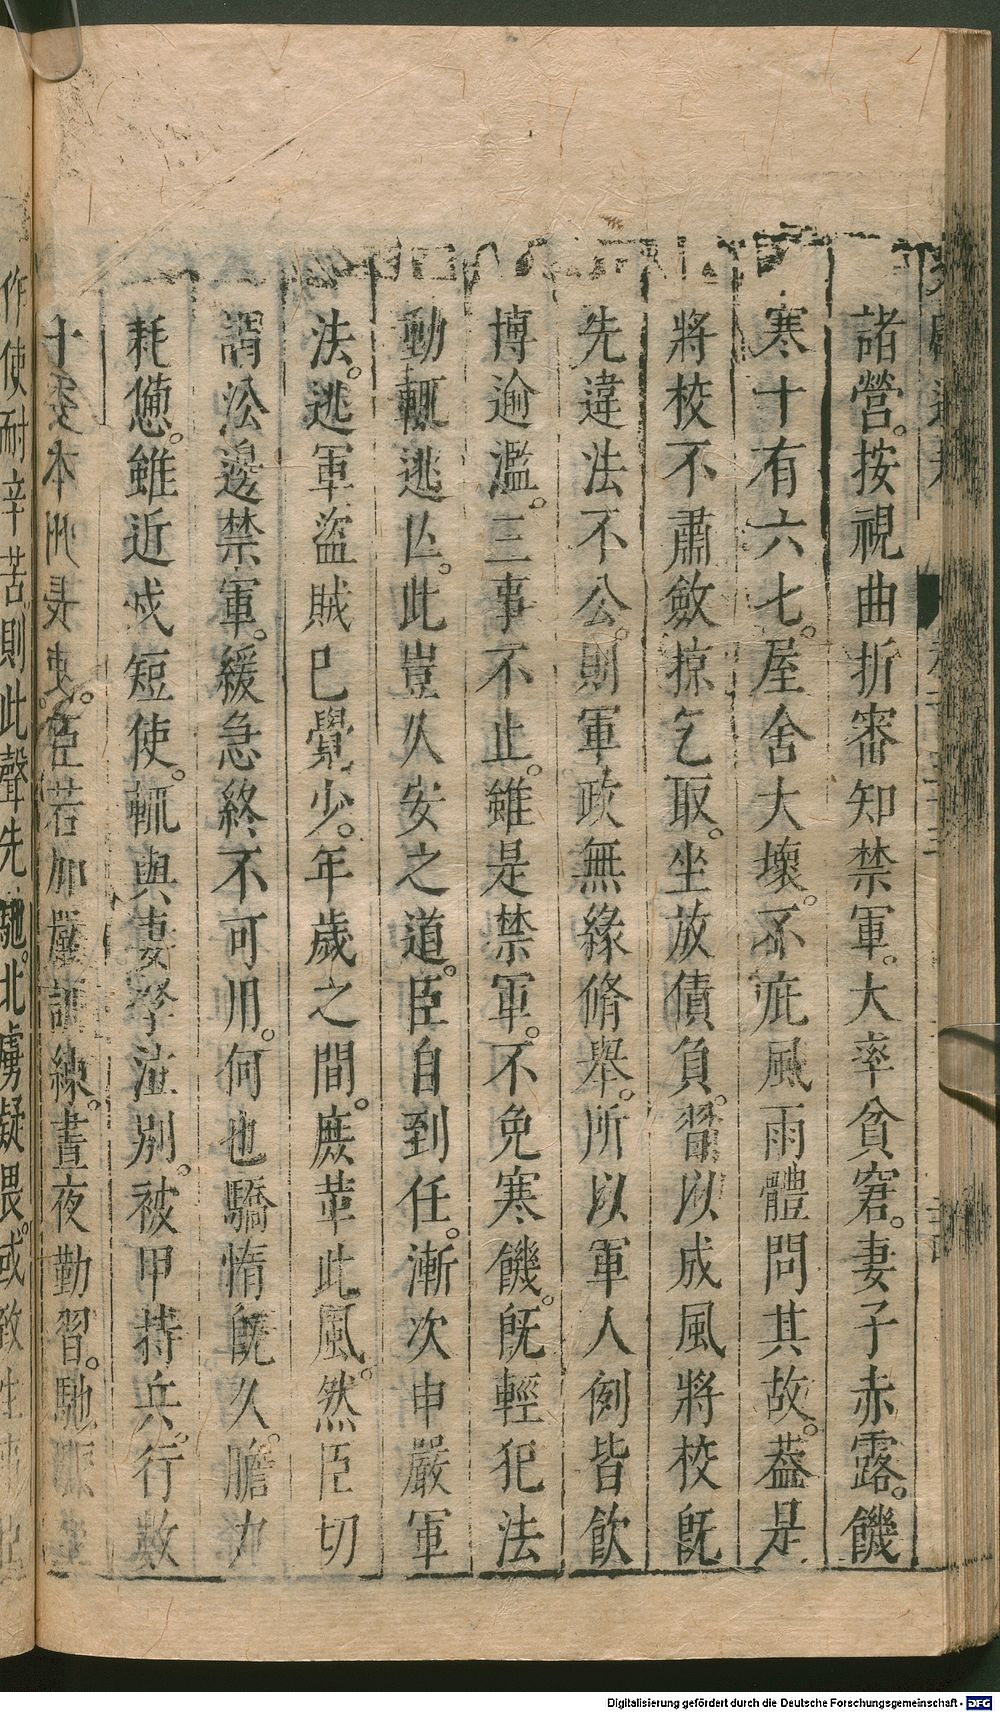 諸營。按視曲折審知禁軍。大率貧窘。妻子赤露。饑
寒十有六七。屋舍大壞。不庇風雨體問其故。葢是
將校不肅斂掠乞取。坐放債負。習以成風將校旣
先違法不公。則軍政無緣脩舉。所以軍人例皆飲
博逾濫。三事不止。雖是禁軍。不免寒饑。旣輕犯法
動輒逃亾。此豈久安之道。臣自到任。漸次申嚴軍
法。逃軍盜賊已覺少。年歲之間。庶革此風。然臣切
謂㳂邊禁軍。緩急終不可用。何也驕惰旣久。膽力
耗憊。雖近戍短使。輒與妻孥泣別。被甲持兵。行數
十 本 臣若加嚴訓練。晝夜勤習。馳
作使耐辛苦則此聲先馳。北虜疑畏。或致生
Digitalisierung gefördert durch die Deutsche Forschungsgemeinschaft - DFG